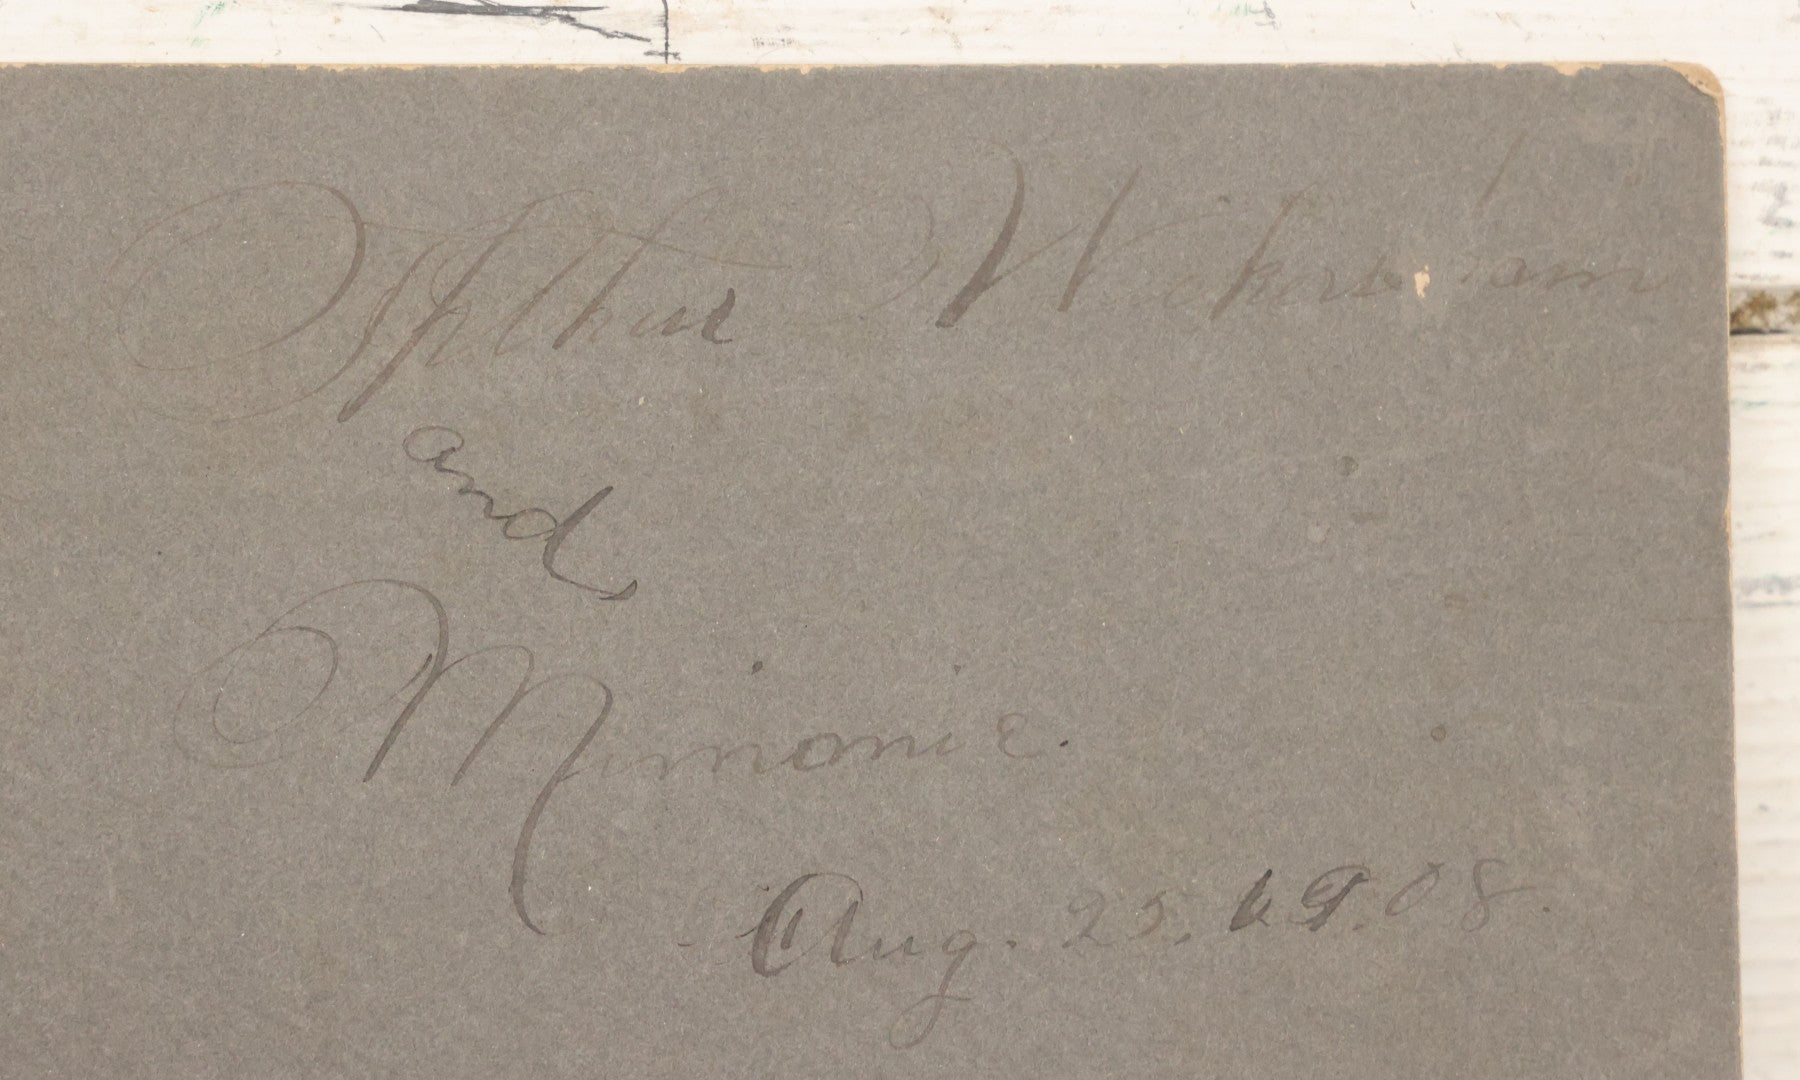 Arthur Wickersham
and
Mimonie.
Aug. 25. 1908.